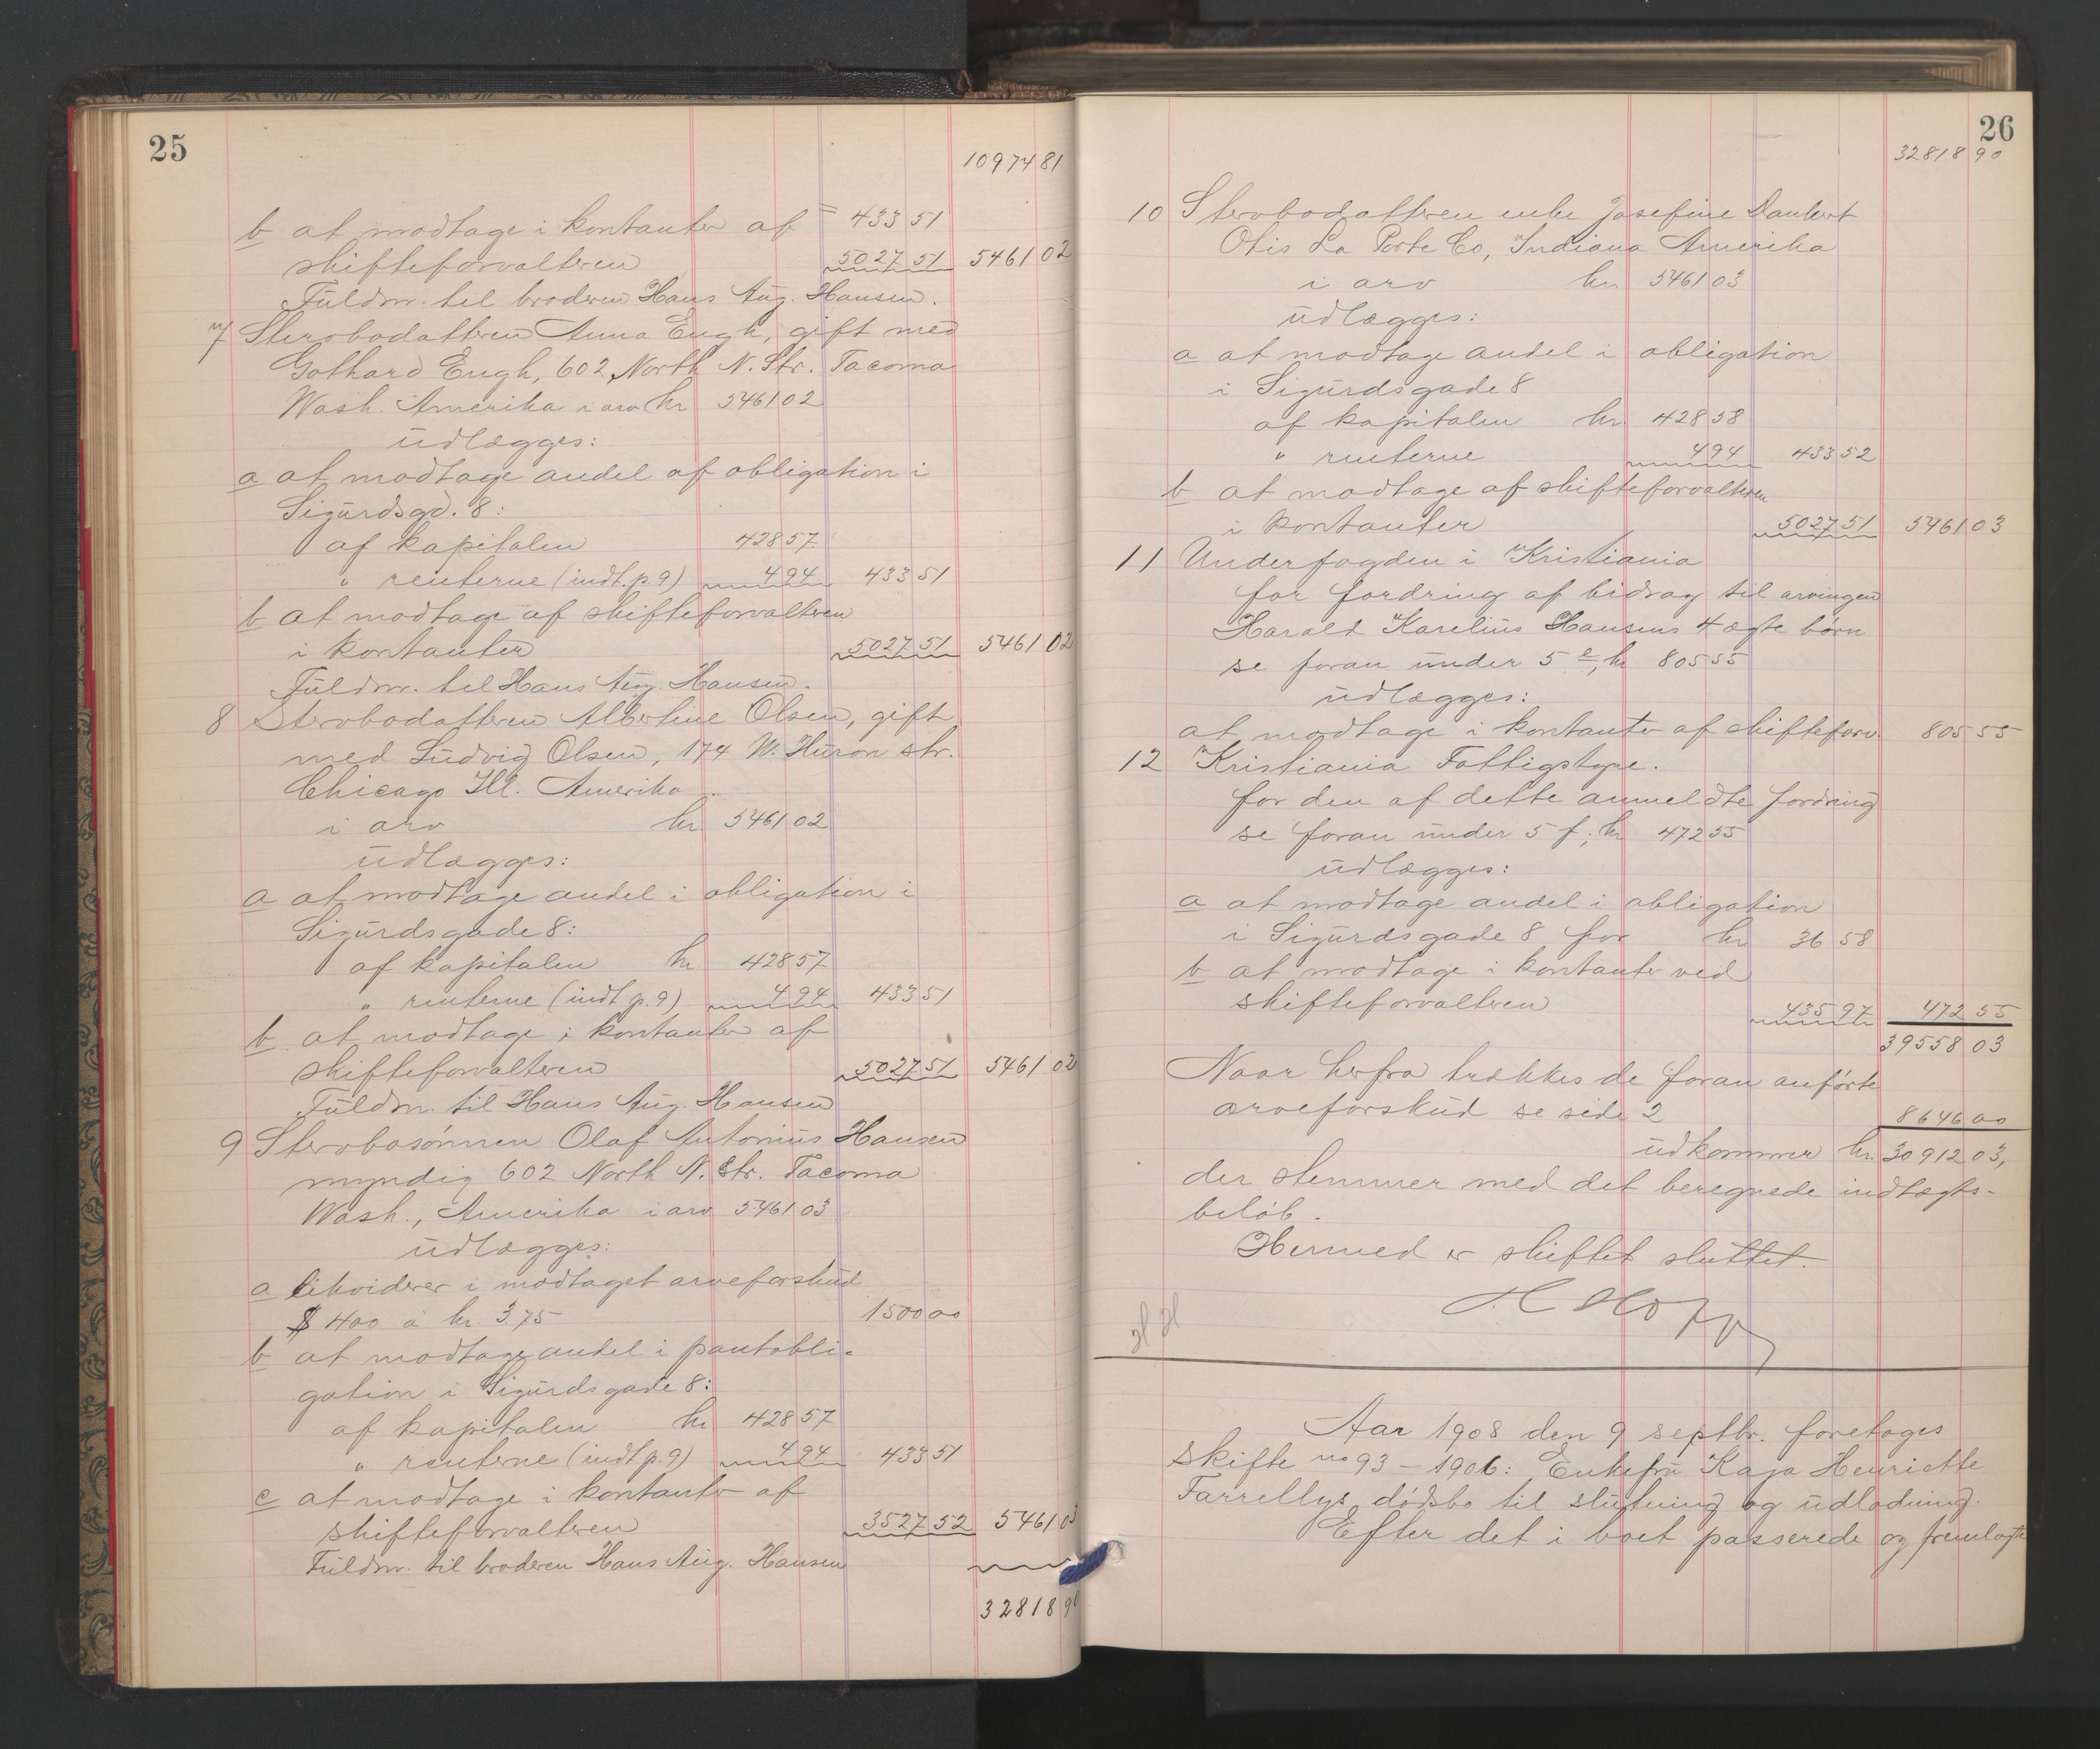 25
10974 81
b at modtage i kontanter af = 433 51
skifteforvalteren 5027 51 5461 02
Fuldm. til broderen Hans Aug. Hansen.
7 Stervbodatteren Anna Engh, gift med
Gothard Engh, 602 North N. Str. Tacoma
Wash. Amerika i arv kr 5461 02
udlægges:
a at modtage andel af obligation i
Sigurdsgd. 8:
af kapitalen 428 57
" renterne (indt. p. 9) 4 94 433 51
b at modtage af skifteforvalteren
i kontanter 5027 51 5461 02
Fuldm. til Hans Aug. Hansen.
8 Stervbodatteren Albertine Olsen, gift
med Ludvig Olsen, 174 W. Huron str.
Chicago Ill. Amerika
i arv kr. 5461 02
udlægges:
a at modtage andel i obligation i
Sigurdsgade 8:
af kapitalen kr 428 57
" renterne (indt p. 9) 4 94 433 51
b at modtage i kontanter af
skifteforvalteren 5027 51 5461 02
Fuldm. til Hans Aug. Hansen
9 Stervbosønnen Olaf Antonius Hansen
myndig 602 North N. Str. Tacoma
Wash., Amerika i arv 5461 03
udlægges:
a likviderer i modtaget arveforskud
$ 400 a kr. 3.75 1500 00
b at modtage andel i pantobli-
gation i Sigurdsgade 8:
af kapitalen kr 428 57
" renterne (indt p. 9) 4 94 433 51
c at modtage i kontanter af
skifteforvalteren 3527 52 5461 03
Fuldm. til broderen Hans Aug. Hansen
32818 90
26
32818 90
10 Stervbodatteren enke Josefine Daubert
Otis La Porte Co, Indiana Amerika
i arv kr. 5461 03
udlægges:
a at modtage andel i obligation
i Sigurdsgade 8
af kapitalen kr. 428 58
" renterne 4 94 433 52
b at modtage af skifteforvalteren
i kontanter 5027 51 5461 03
11 Underfogden i Kristiania
for fordring af bidrag til arvingen
Harald Karelius Hansens 4 ægte børn
se foran under 5 e, kr 805 55
udlægges:
at modtage i kontanter af skifteforv. 805 55
12 Kristiania Fattigstyre.
for den af dette anmeldte fordring
se foran under 5 f, kr 472 55
udlægges:
a at modtage andel i obligation
i Sigurdsgade 8 for kr 36 58
b at modtage i kontanter ved
skifteforvalteren 435 97 472 55
39558 03
Naar herfra trækkes de foran anførte
arveforskud se side 2 8646 00
udkommer kr. 30912 03,
der stemmer med det beregnede indtægts-
beløb.
Hermed er skiftet sluttet.
Aar 1908 den 9 septbr. foretages
skifte no 93 - 1906: Enkefru Kaja Henriette
Farrellys dødsbo til slutning og udlodning.
Efter det i boet passerede og fremlagte